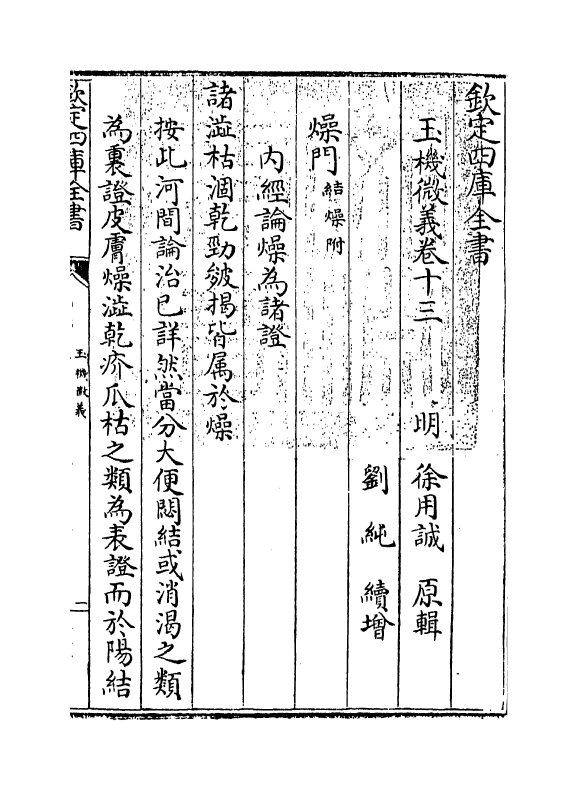 欽定四庫全書
玉機微義卷十三
明　徐用誠　原輯
劉　純　續增
燥門結燥附
內經論燥為諸證
諸澁枯涸乾勁皴揭皆属於燥
按此河間論治已詳然當分大便悶結或消渴之類
為裏證皮膚燥澁乾疥爪枯之類為表證而於陽結
欽定四庫全書
玉機微義
二